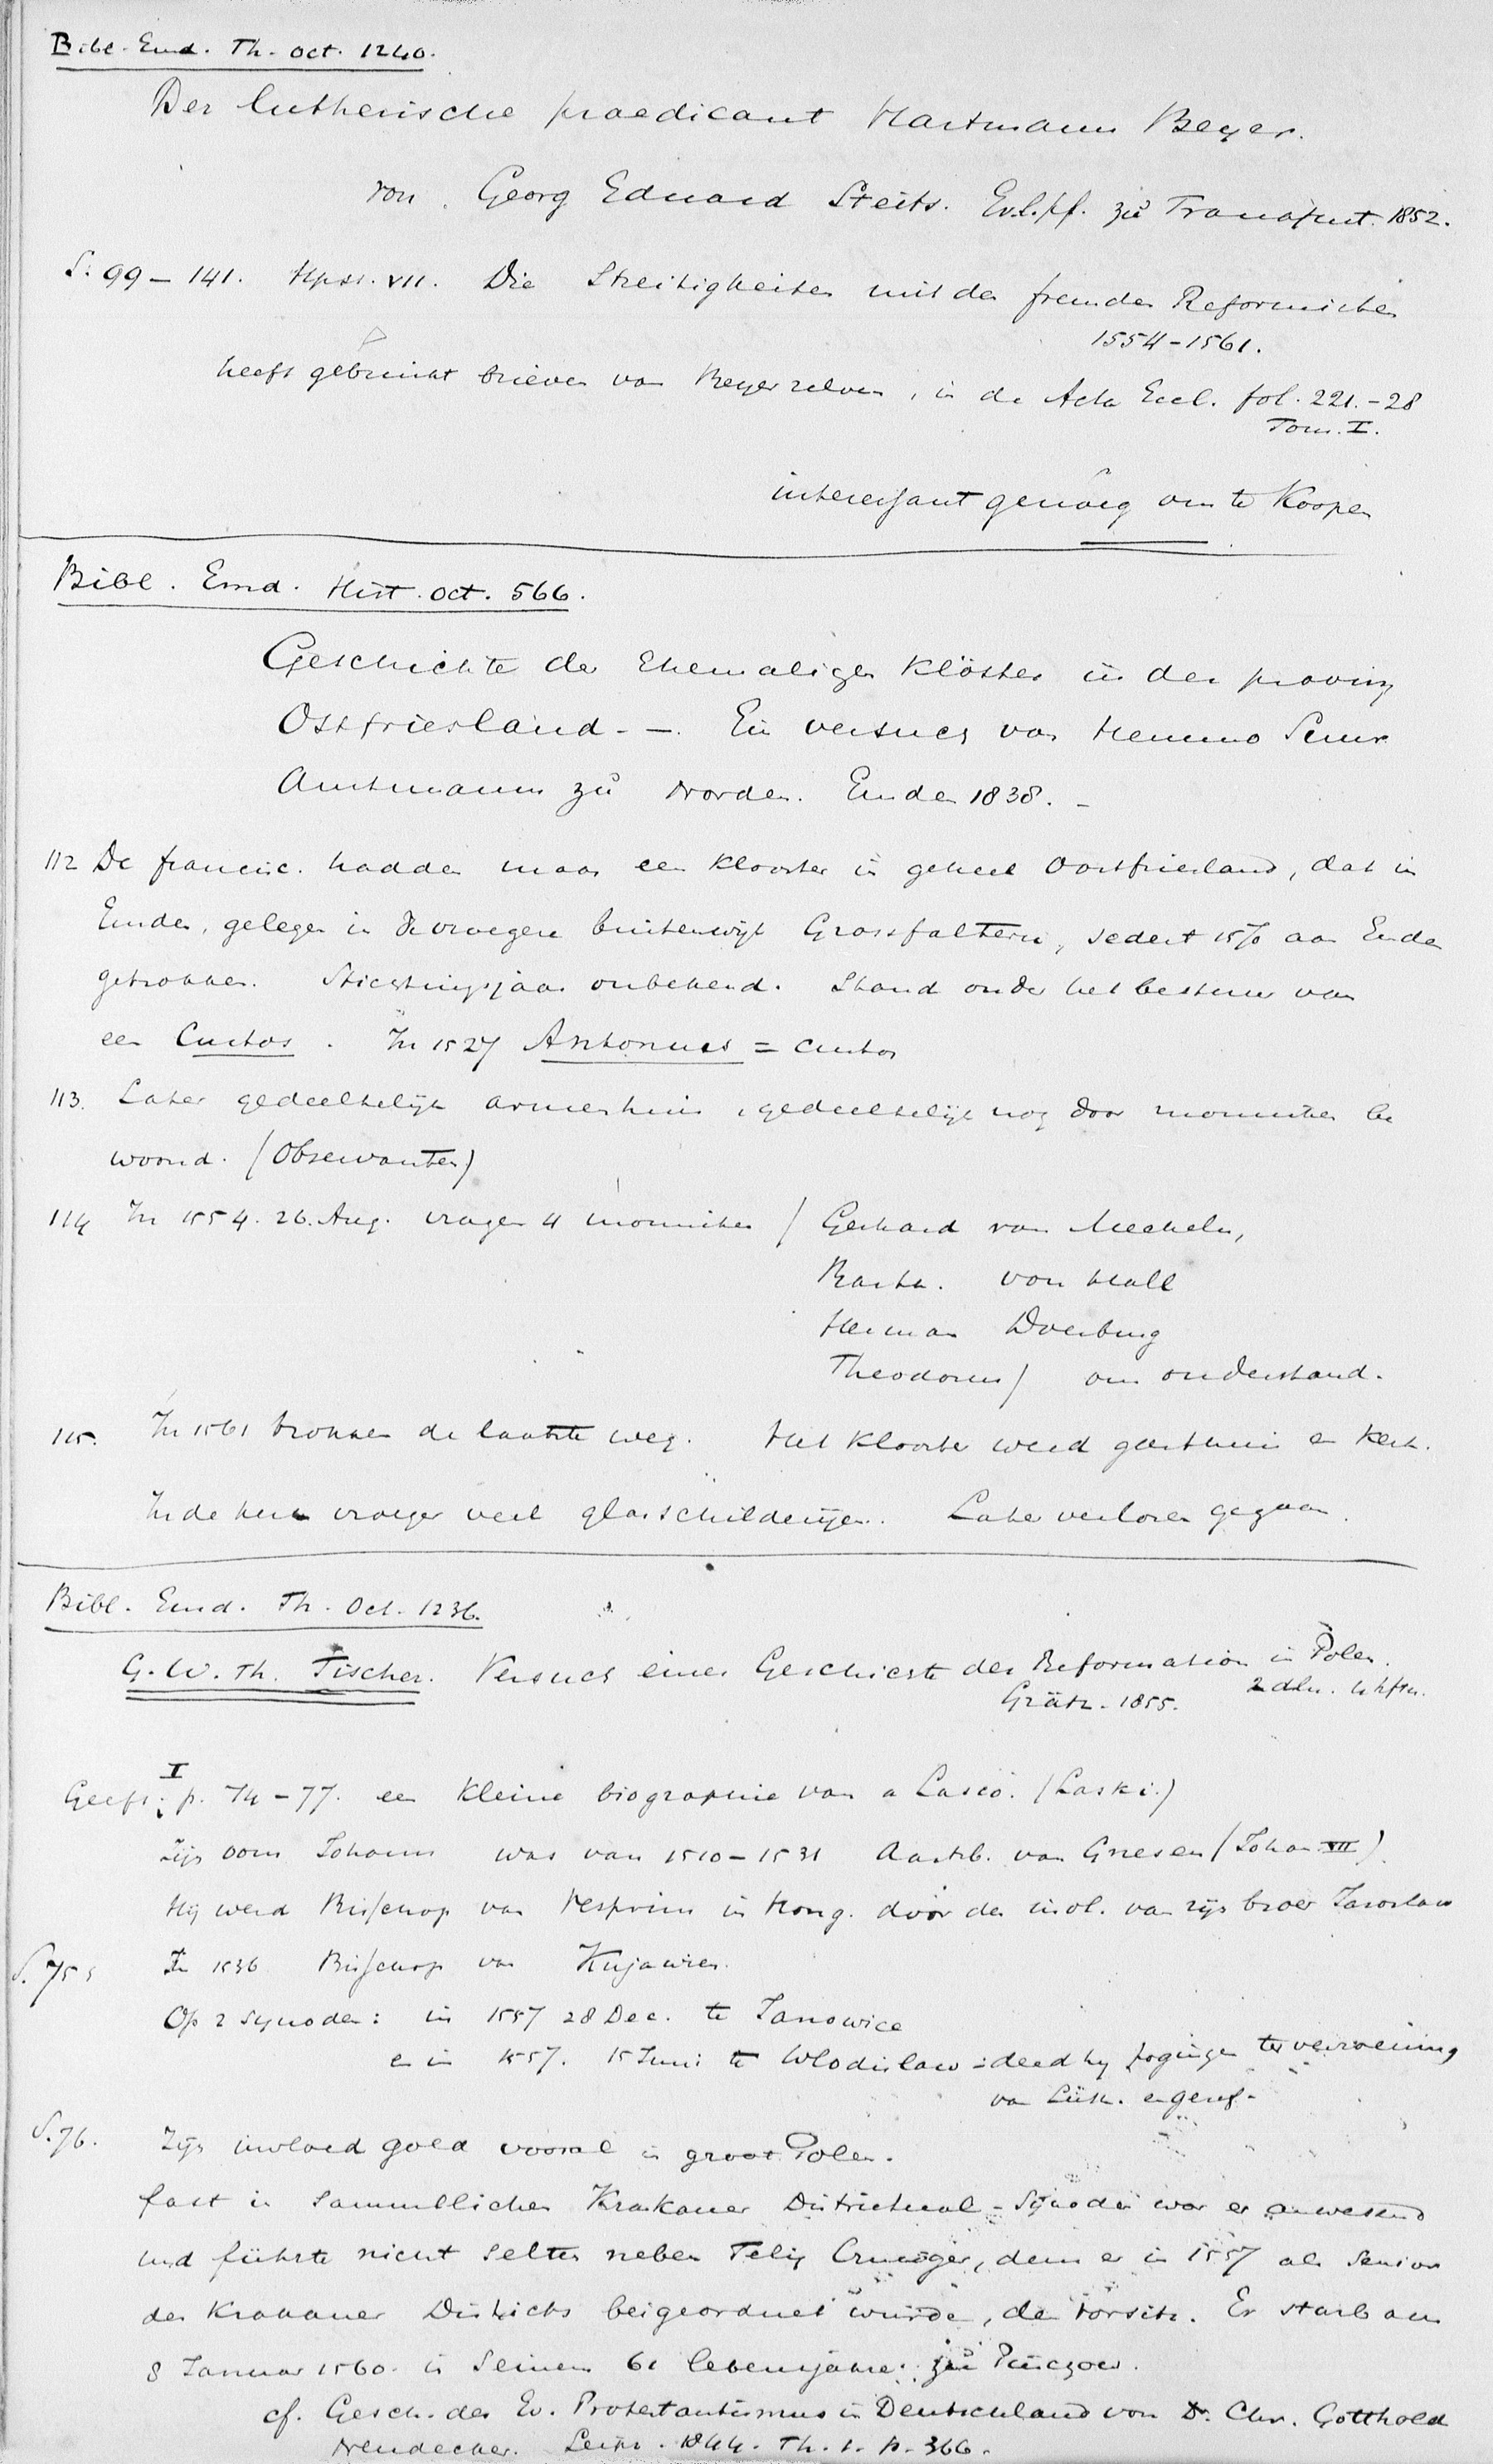 Bibl. Emd. Th. oct. 1240.
Der lutherische praedicant Hartmann Beyer.
von Georg Eduard Steitz. Ev.l.pf. zu Francfurt. 1852.
S. 99 – 141. Hpst. VII. Die Streitigkeiten mit den fremden Reformirten
1554-1561.
heeft gebruikt brieven van Beyer zelven, in de Acta Eccl. fol. 221.-28
Tom. I.
interessant genoeg om te Koopen
Bibl. Emd. Hist. oct. 566.
Geschichte der Ehemaligen Klöster in der provinz
Ostfriesland. –. Ein versuch von Hemmo Suur
Amtmann zu Norden. Emden 1838. –
112 De francisc. hadden maar een Klooster in geheel Oostfriesland, dat in
Emden, gelegen in de vroegere buitenwijk Grossfaltern, sedert 1570 aan Emden
getrokken. Stichtingsjaar onbekend. Stond onder het bestuur van
een Custos. In 1527 Antonius = custos
113. Later gedeeltelijk armenhuis, gedeeltelijk nog door monniken be
woond. (Observanten)
114 In 1554. 26. Aug. vragen 4 monniken / Gerhard von Mecheln,
Barth. von Hall
Herman Doerburg
Theodorus / om onderstand.
115. In 1561 trokken de laatste weg. Het Klooster werd gasthuis en Kerk.
In de kerk vroeger veel glasschilderijen. Later verloren gegaan.
Bibl. Emd. Th. Oct. 1236.
G. W. Th. Fischer. Versuch einer Geschichte der Reformation in Polen.
Grätz. 1855. 2 dln.
Geeft I p. 74 – 77. een Kleine biographie van a Lasco. (Laski.)
Zijn oom Johann was van 1510 – 1531 Aartsb. van Gnesen (Johan VII)
Hij werd Bisschop van Vesprim in Hong. door den invl. van zijn broer Jaroslaw
S. 75 In 1536 Bisschop van Kujawien.
Op 2 synoden: in 1557 28 Dec. te Janowice
en in 1557. 15 Juni te Wlodislaw deed hij pogingen ter verzoening
van Luth. en geref.
S. 76. Zijn invloed gold vooral in groot Polen.
fast in sammtlichen Krakauer Districtual-Synoden war er anwesend
und führte nicht selten neben Felix Cruciger, dem er in 1557 als Senior
des Krakauer Districts beigeordnet wurde, den Vorsitz. Er starb am
8 Januar 1560. in seinem 61 lebensjahre zu Pinczow.
cf. Gesch. des Ev. Protestantismus in Deutschland von Dr. Chr. Gotthold
Neudecker. Leipz. 1844. Th. 1. p. 366.